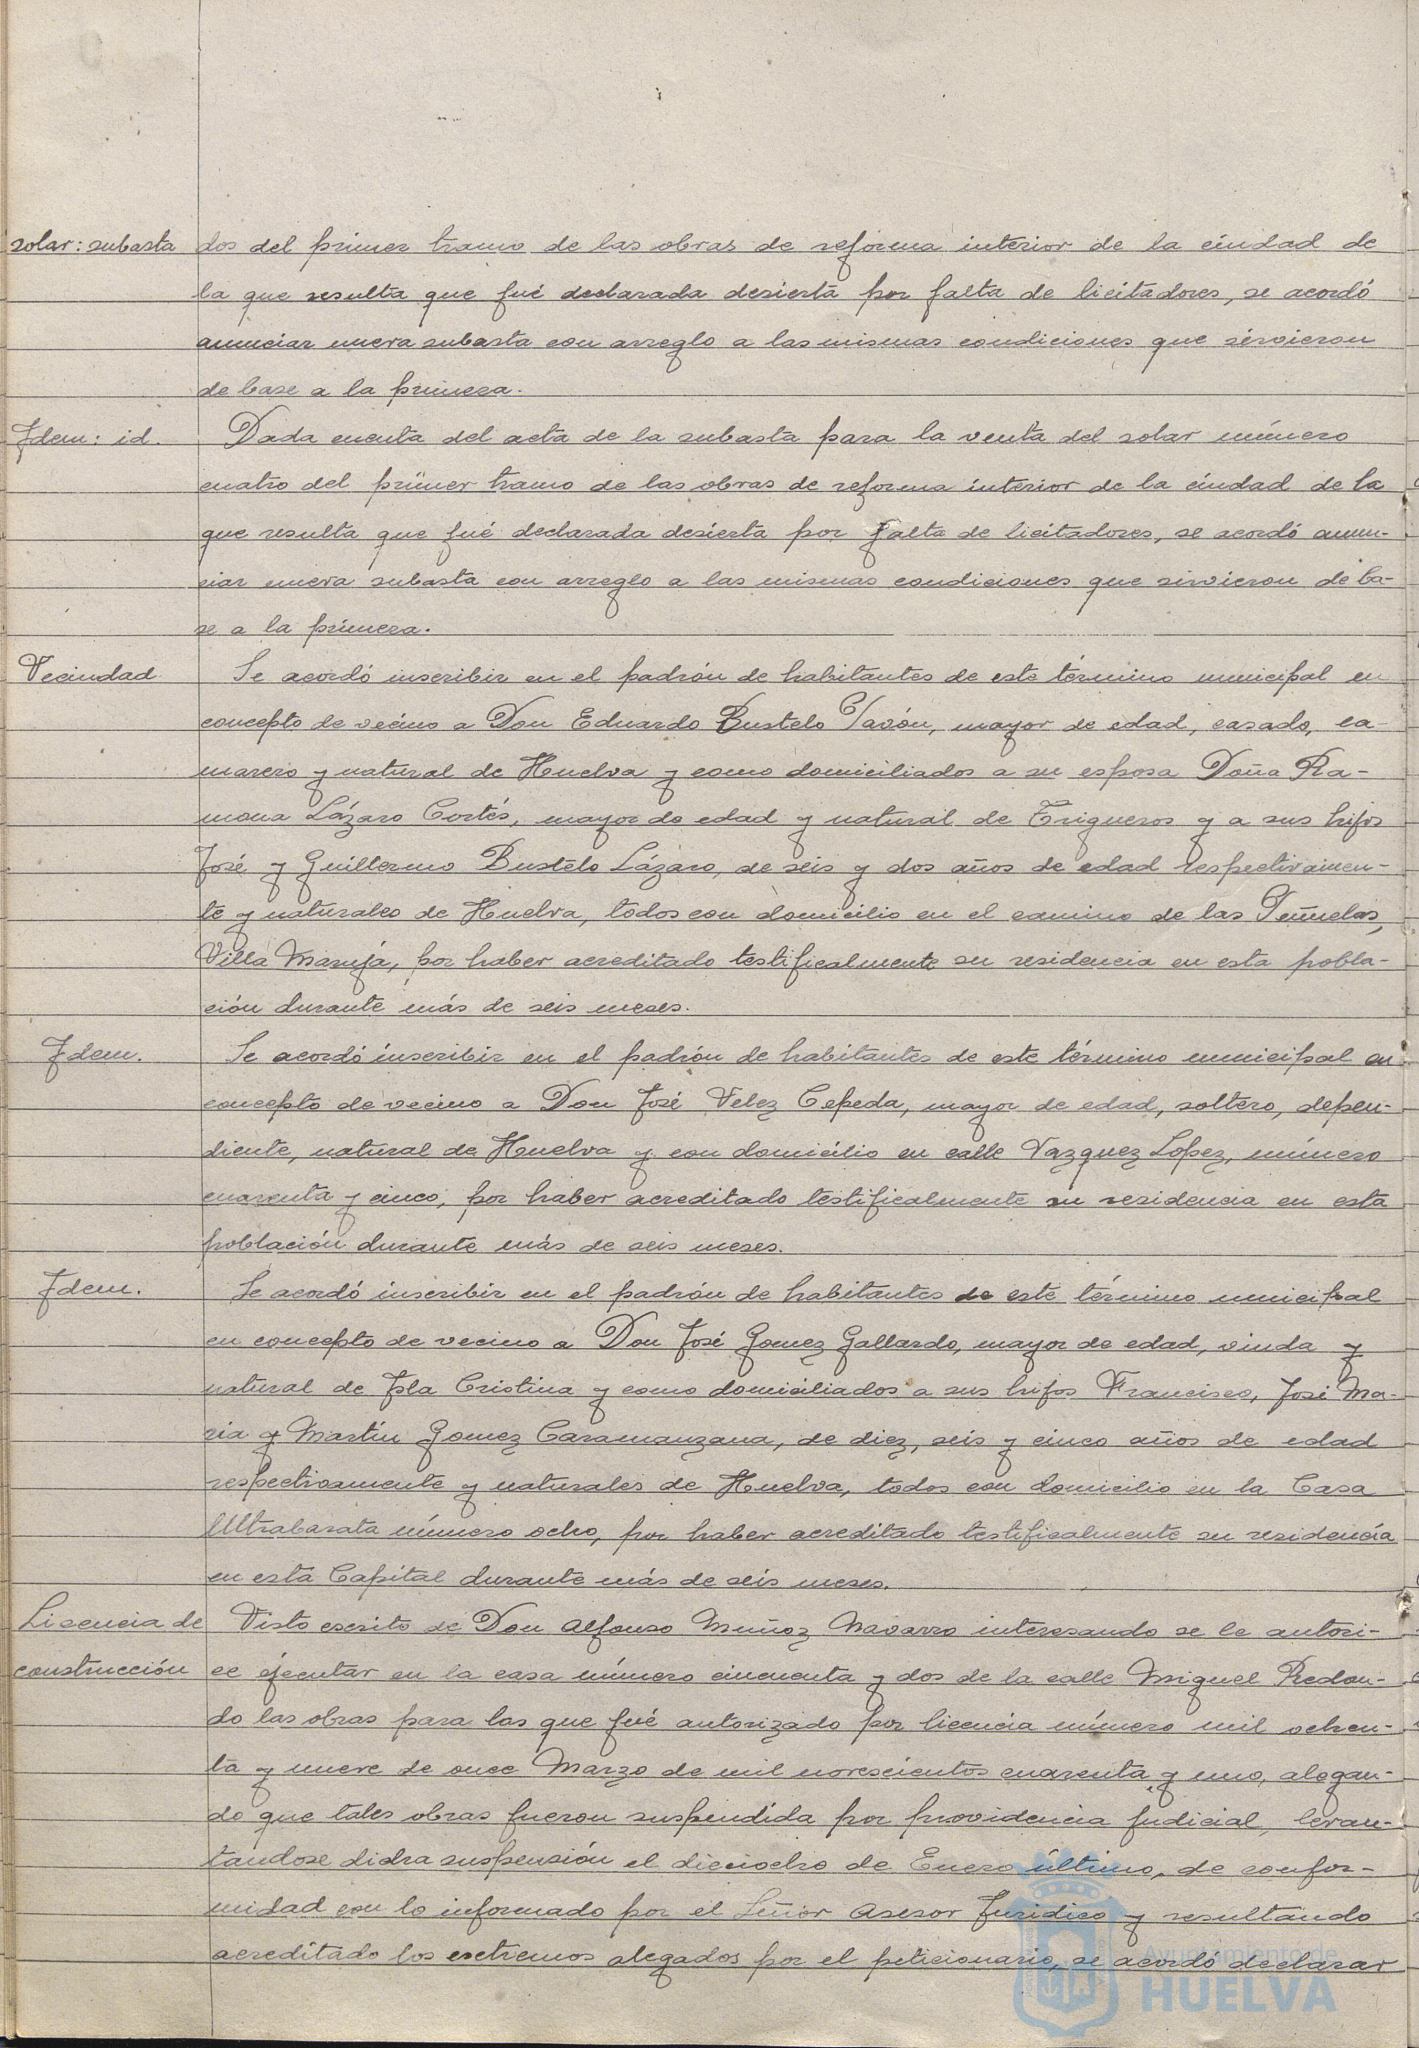 solar: subasta dos del primer tramo de las obras de reforma interior de la ciudad de
la que resulta que fué declarada desierta por falta de licitadores, se acordó
anunciar nueva subasta con arreglo a las mismas condiciones que sirvieron
de base a la primera.
Idem: id. Dada cuenta del acta de la subasta para la venta del solar número
cuatro del primer tramo de las obras de reforma interior de la ciudad de la
que resulta que fué declarada desierta por falta de licitadores, se acordó anun-
ciar nueva subasta con arreglo a las mismas condiciones que sirvieron de ba-
se a la primera.
Vecindad. Se acordó inscribir en el padrón de habitantes de este término municipal en
concepto de vecino a Don Eduardo Bustelo Pavón, mayor de edad, casado, ca-
marero y natural de Huelva y como domiciliados a su esposa Doña Ra-
mona Lázaro Cortés, mayor de edad y natural de Trigueros y a sus hijos
José y Guillermo Bustelo Lázaro, de seis y dos años de edad respectivamen-
te y naturales de Huelva, todos con domicilio en el camino de las Peñuelas,
Villa Maruja, por haber acreditado testificalmente su residencia en esta pobla-
ción durante más de seis meses.
Idem. Se acordó inscribir en el padrón de habitantes de este término municipal en
concepto de vecino a Don José Velez Cepeda, mayor de edad, soltero, depen-
diente, natural de Huelva y con domicilio en calle Vazquez Lopez, número
cuarenta y cinco, por haber acreditado testificalmente su residencia en esta
población durante más de seis meses.
Idem. Se acordó inscribir en el padrón de habitantes de este término municipal
en concepto de vecino a Don José Gomez Gallardo, mayor de edad, viuda y
natural de Isla Cristina y como domiciliados a sus hijos Francisco, José Ma-
ria y Martín Gomez Caramanzana, de diez, seis y cinco años de edad
respectivamente y naturales de Huelva, todos con domicilio en la Casa
Ultrabarata número ocho, por haber acreditado testificalmente su residencia
en esta Capital durante más de seis meses.
Licencia de Visto escrito de Don Alfonso Muñoz Navarro interesando se le autori-
construcción ce ejecutar en la casa número cincuenta y dos de la calle Miguel Redon-
do las obras para las que fué autorizado por licencia número mil ochen-
ta y nueve de once Marzo de mil novescientos cuarenta y uno, alegan-
do que tales obras fueron suspendida por providencia judicial, levan-
tandose dicha suspensión el dieciocho de Enero último, de confor-
midad con lo informado por el Señor Asesor Juridico y resultando
acreditado los extremos alegados por el peticionario, se acordó declarar
Ayuntamiento de
HUELVA